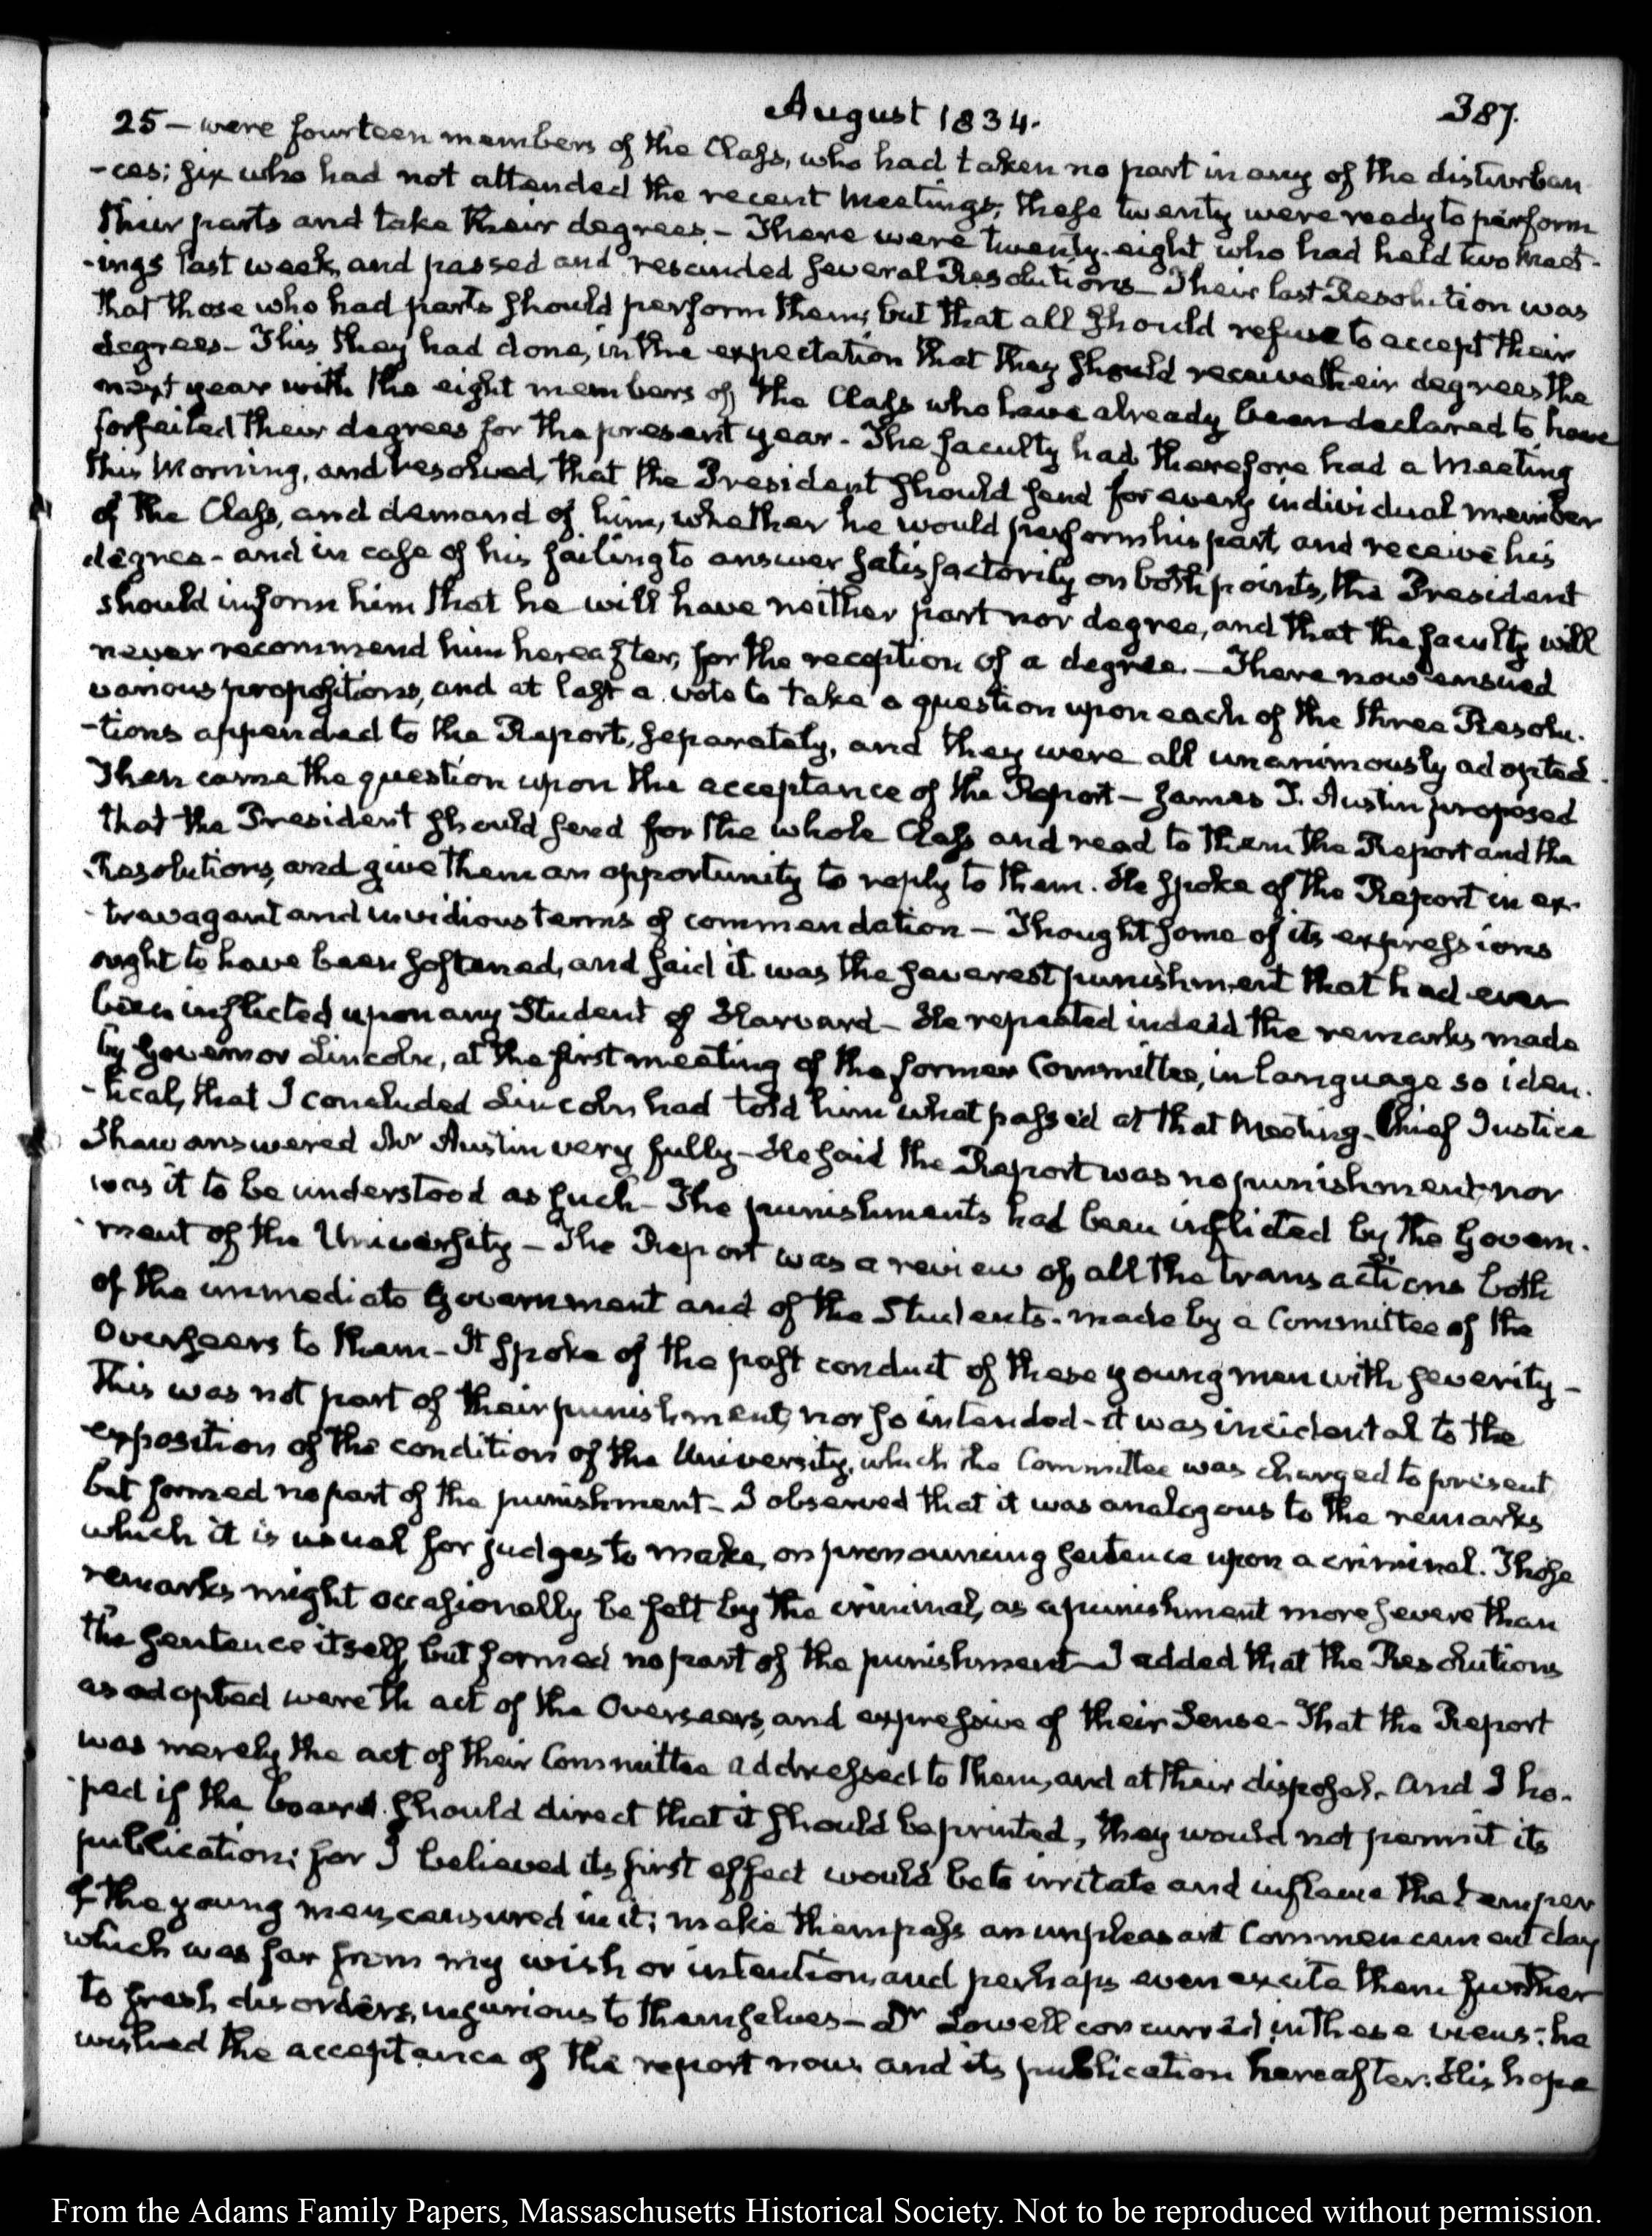 August 1834.
387.
25 — were fourteen members of the Class, who had taken no part in any of the disturban
-ces; six who had not attended the recent meetings, these twenty were ready to perform
their parts and take their degrees. — There were twenty-eight who had held two meet-
-ings last week, and passed and rescinded several Resolutions — Their last Resolution was
that those who had parts should perform them; but that all should refuse to accept their
degrees — This they had done, in the expectation that they should receive their degrees the
next year with the eight members of the Class who have already been declared to have
forfeited their degrees for the present year. The faculty had therefore had a meeting
this Morning, and resolved, that the President should send for every individual member
of the Class, and demand of him, whether he would perform his part, and receive his
degree — and in case of his failing to answer satisfactorily on both points, the President
should inform him that he will have neither part nor degree, and that the faculty will
never recommend him hereafter, for the reception of a degree. — There now ensued
various propositions, and at last a vote to take a question upon each of the three Resolu-
-tions appended to the Report, separately, and they were all unanimously adopted.
Then came the question upon the acceptance of the Report — James T. Austin proposed
that the President should send for the whole Class and read to them the Report and the
Resolutions, and give them an opportunity to reply to them. He spoke of the Report in ex-
-travagant and invidious terms of commendation — Thought some of its expressions
ought to have been softened, and said it was the severest punishment that had ever
been inflicted upon any Student of Harvard — He repeated indeed the remarks made
by Governor Lincoln, at the first meeting of the former Committee, in language so iden-
-tical, that I concluded Lincoln had told him what passed at that Meeting. Chief Justice
Shaw answered Mr Austin very fully — He said the Report was no punishment, nor
was it to be understood as such — The punishments had been inflicted by the Govern-
-ment of the University — The Report was a review of all the transactions both
of the immediate Government and of the Students. made by a Committee of the
Overseers to them — It spoke of the past conduct of these young men with severity —
This was not part of their punishment, nor so intended — it was incidental to the
exposition of the condition of the University, which the Committee was charged to present
but formed no part of the punishment — I observed that it was analogous to the remarks
which it is usual for judges to make, on pronouncing sentence upon a criminal. Those
remarks might occasionally be felt by the criminal, as a punishment more severe than
the sentence itself, but formed no part of the punishment — I added that the Resolutions
as adopted were th act of the Overseers, and expressive of their Sense — That the Report
was merely the act of their Committee addressed to them, and at their disposal. And I ho-
-ped if the board should direct that it should be printed, they would not permit its
publication; for I believed its first effect would be to irritate and inflame the temper
of the young men, censured in it; make them pass an unpleasant Commencement day
which was far from my wish or intention, and perhaps even excite them further
to fresh disorders, injurious to themselves — Dr Lowell concurred in these views; he
wished the acceptance of the report now, and its publication hereafter. His hope
From the Adams Family Papers, Massachusetts Historical Society. Not to be reproduced without permission.